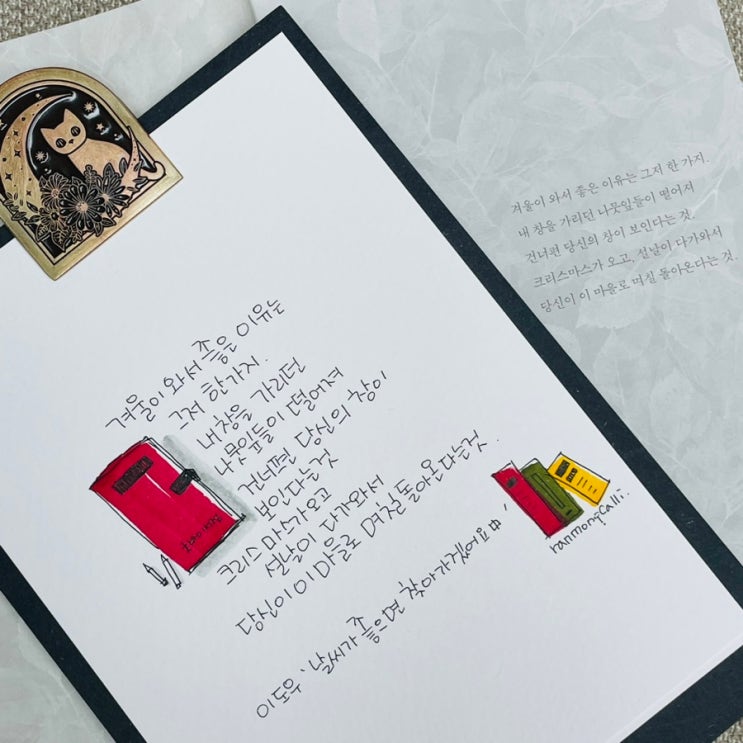 겨울이 와서 좋은 이유는 그저 한 가지.
내 창을 가리던 나뭇잎들이 떨어져
건너편 당신의 창이 보인다는 것.
크리스마스가 오고, 설날이 다가와서
당신이 이 마을로 며칠 돌아온다는 것.
겨울이 와서 좋은 이유는
그저 한가지.
내창을 가리던
나뭇잎들이 떨어져
건너편 당신의 창이
보인다는것
크리스마스가오고
설날이 다가와서
당신이 이 마을로 며칠 돌아온다는것.
이도우 '날씨가 좋으면 찾아가겠어요中'
ranmongcalli.